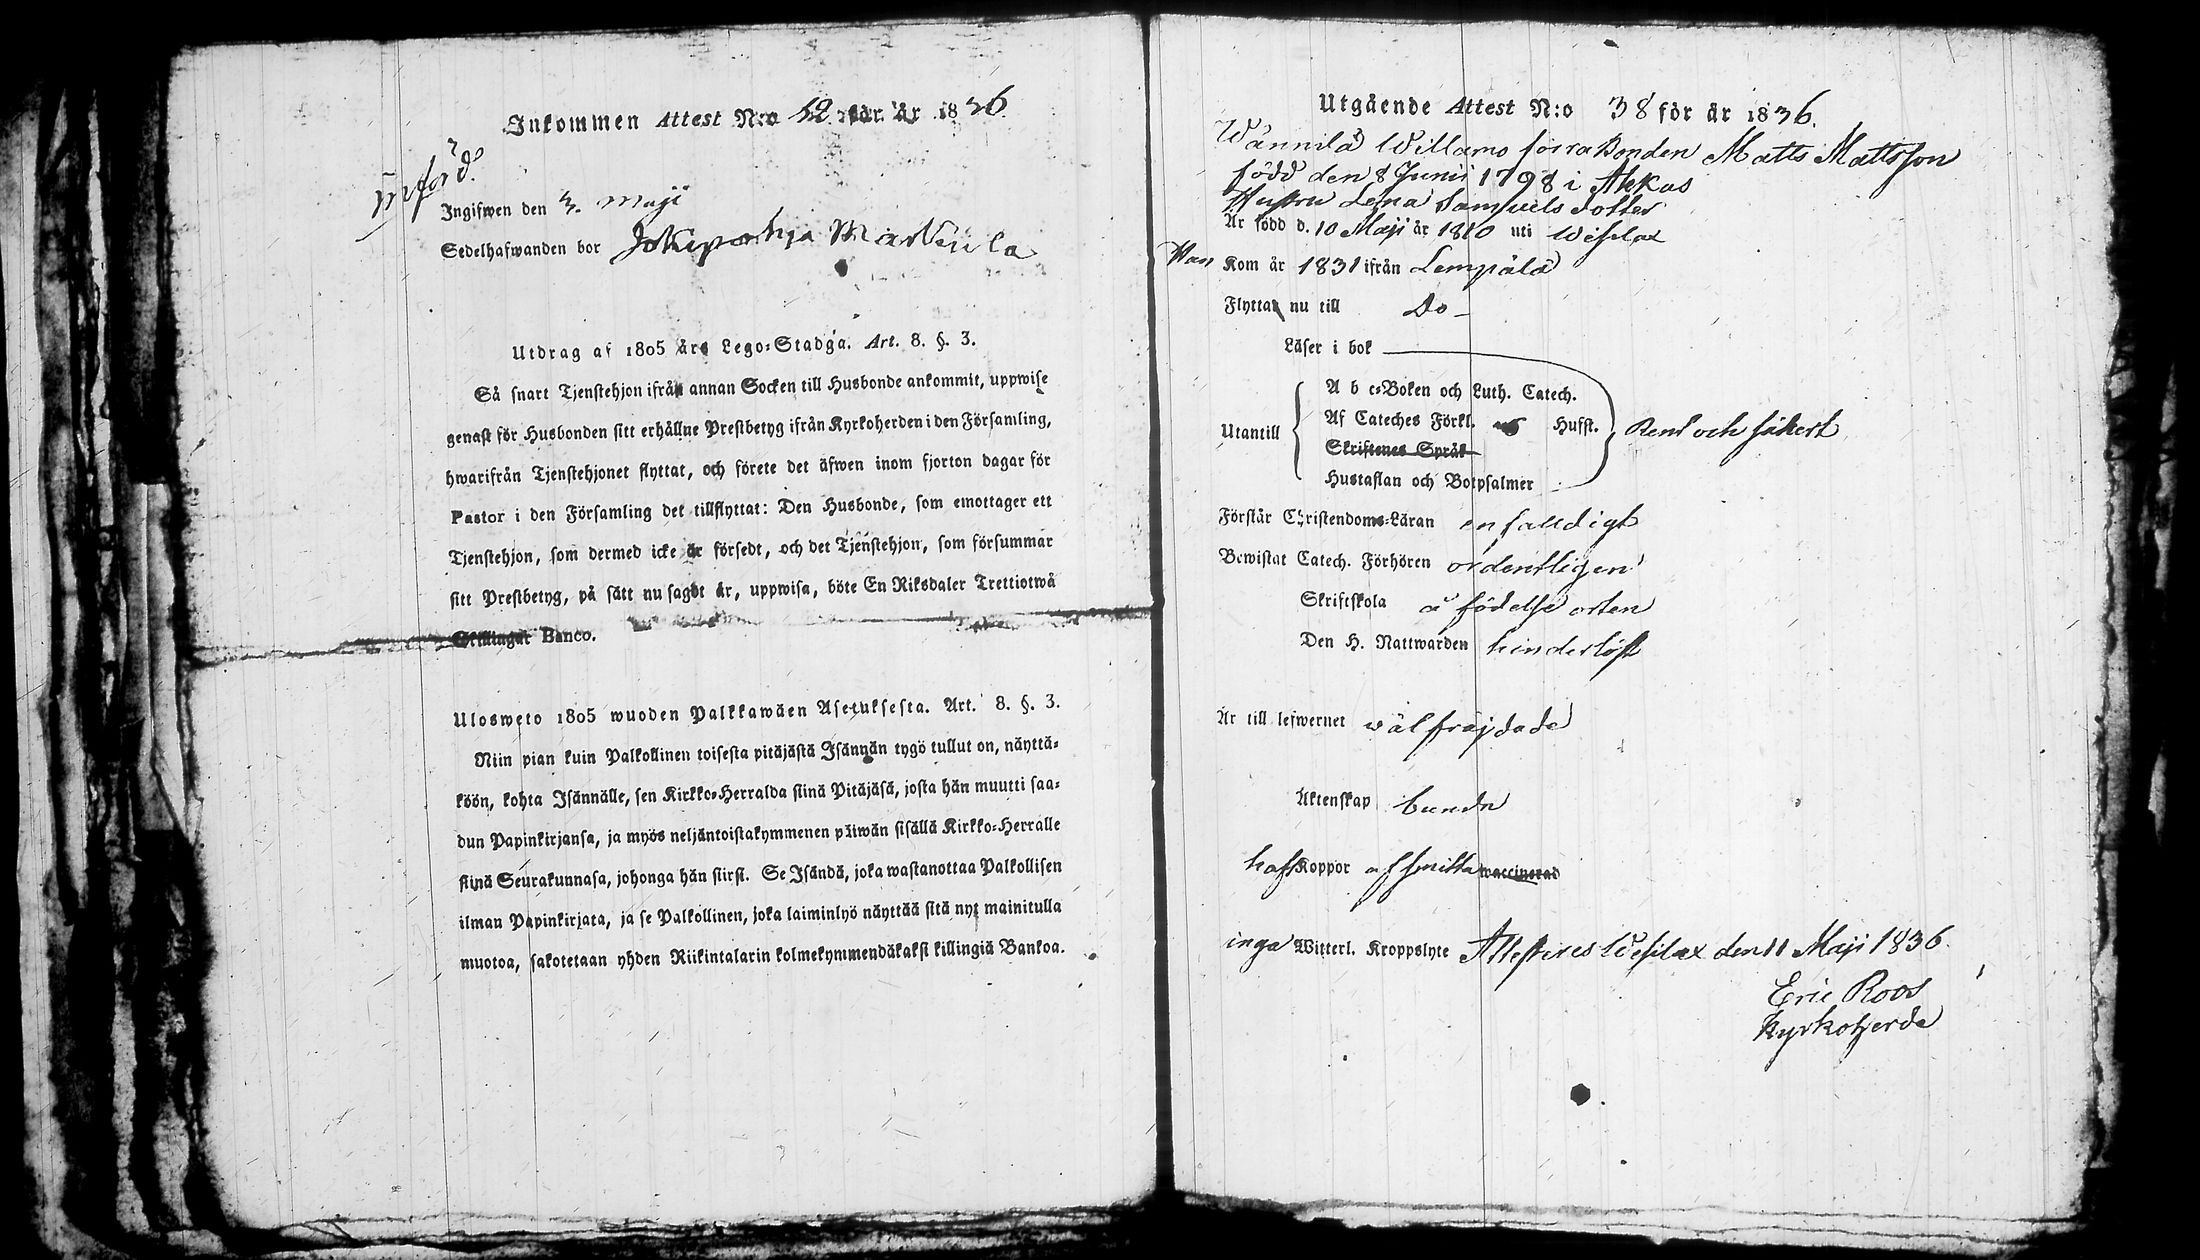 Inkommen Attest N:o 52 för år 1836.
införd.
Ingifwen den 3. Maji
Sedelhafwanden bor Jokipohja Marttila
Utdrag af 1805 års Lego-Stadga. Art. 8. §. 3.
Så snart Tjenstehjon ifrån annan Socken till Husbonde ankommit, uppwise
genast för Husbonden sitt erhållne Prestbetyg ifrån Kyrkoherden i den Församling,
hwarifrån Tjenstehjonet flyttat, och förete det äfwen inom fjorton dagar för
Pastor i den Församling det tillflyttat: Den Husbonde, som emottager ett
Tjenstehjon, som dermed icke är försedt, och det Tjenstehjon, som försummar
sitt Prestbetyg, på sätt nu sagdt är, uppwisa, böte En Riksdaler Trettiotwå
Skillingar Banco.
Ulosweto 1805 wuoden Palkkawäen Asetuksesta. Art. 8. §. 3.
Niin pian kuin Palkollinen toisesta pitäjästä Isännän tygö tullut on, näyttä-
köön, kohta Isännälle, sen Kirkko-Herralda siinä Pitäjäsä, josta hän muutti saa-
dun Papinkirjansa, ja myös neljäntoistakymmenen päiwän sisällä Kirkko-Herralle
siinä Seurakunnasa, johonga hän siirsi. Se Isändä, joka wastanottaa Palkollisen
ilman Papinkirjata, ja se Palkollinen, joka laiminlyö näyttää sitä nyt mainitulla
muotoa, sakotetaan yhden Riikintalarin kolmekymmendäkaksi killingiä Bankoa.
Utgående Attest N:o 38 för år 1836.
Wännilä Willamo förra Bonden Matts Mattsson
född den 8 Junii 1798 i Akkas
Hustru Lena Samuels dotter
Är född d. 10 Maji år 1810 uti Wesilax
Han Kom år 1831 ifrån Lempälä
Flytta nu till Do
Läser i bok
A b c-Boken och Luth. Catech.
Utantill Af Cateches Förkl. Husf. Rent och säkert
Skriftenes Språk
Hustaflan och Botpsalmer
Förstår Christendoms-Läran enfalldigt
Bewistat Catech. Förhören ordentligen
Skriftskola å födelse orten
Den H. Nattwarden hinderlöst
Är till lefwernet wälfräjdade
Äktenskap bundne
haft Koppor af smitta vaccinerad
inga Witterl. Kroppslyte Attesteres Wesilax den 11 Maji 1836.
Eric Roos
Kyrkoherde